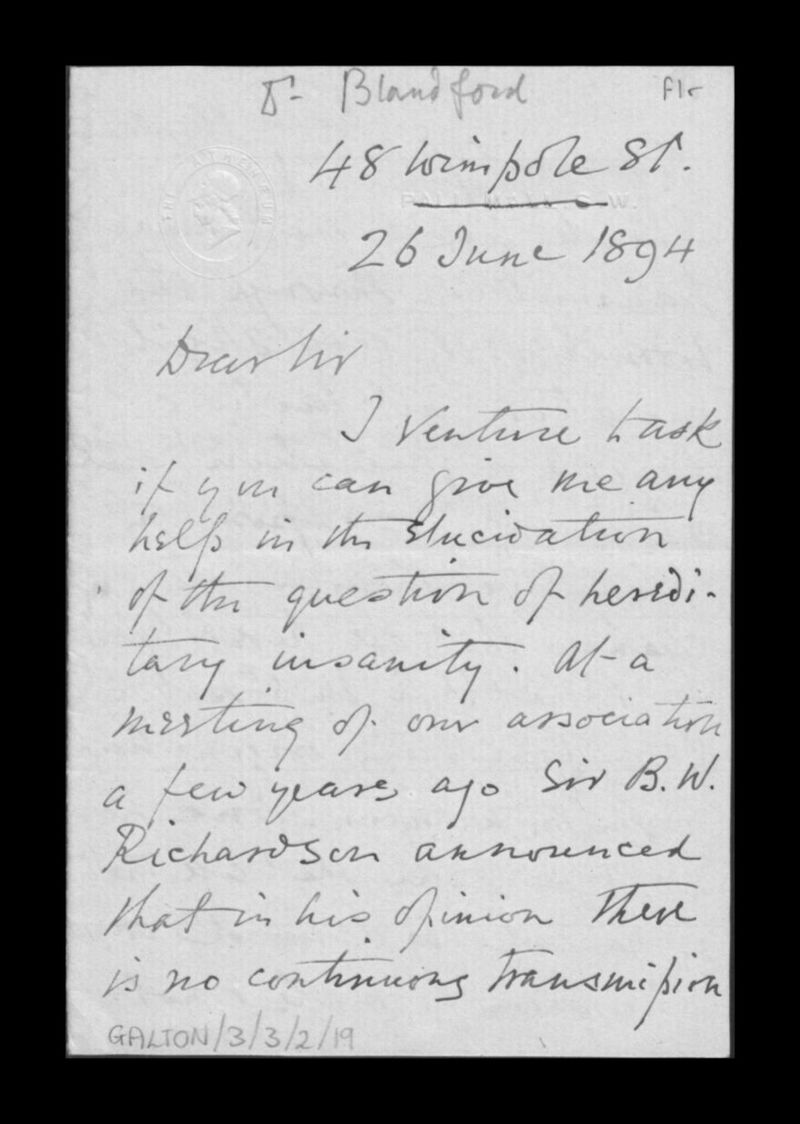 Dr Blandford
f1r
48 Wimpole St.
THE ATHENAEUM
PALL MALL S.W.
26 June 1894
Dear Sir
I venture to ask
if you can give me any
help in the elucidation
of the question of heredi-
tary insanity. At a
meeting of our association
a few years ago Sir B.W.
Richardson announced
that in his opinion there
is no continuous transmission
GALTON/3/3/2/19